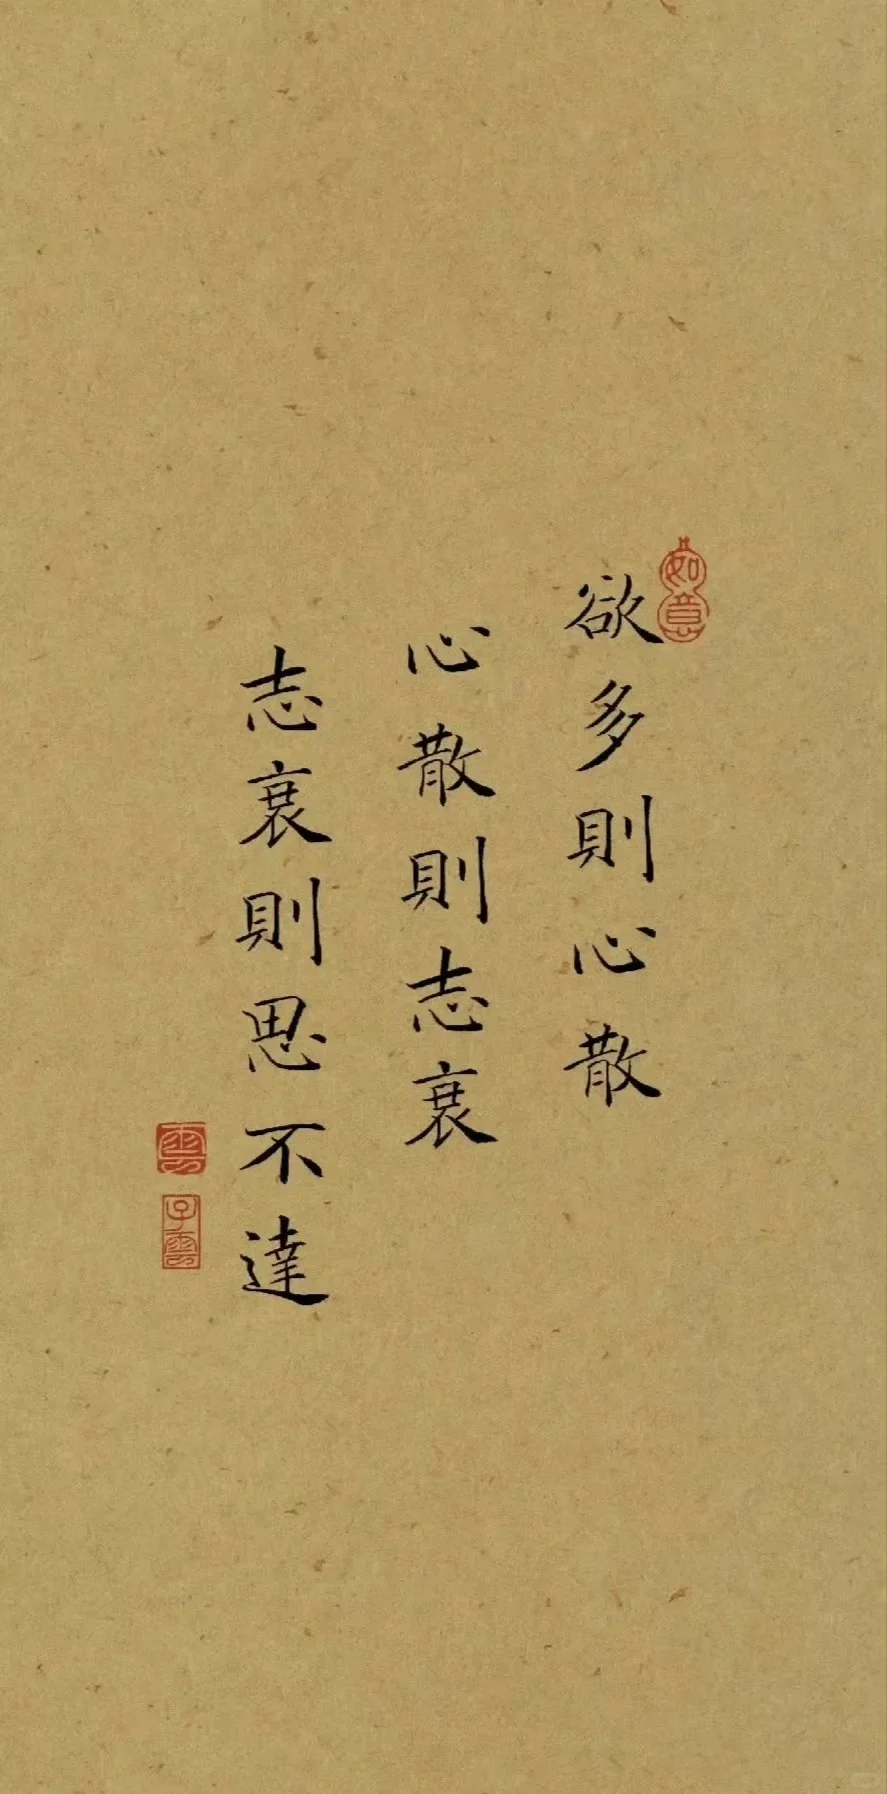 如意
欲多則心散
心散則志衰
志衰則思不達
雲
子雲